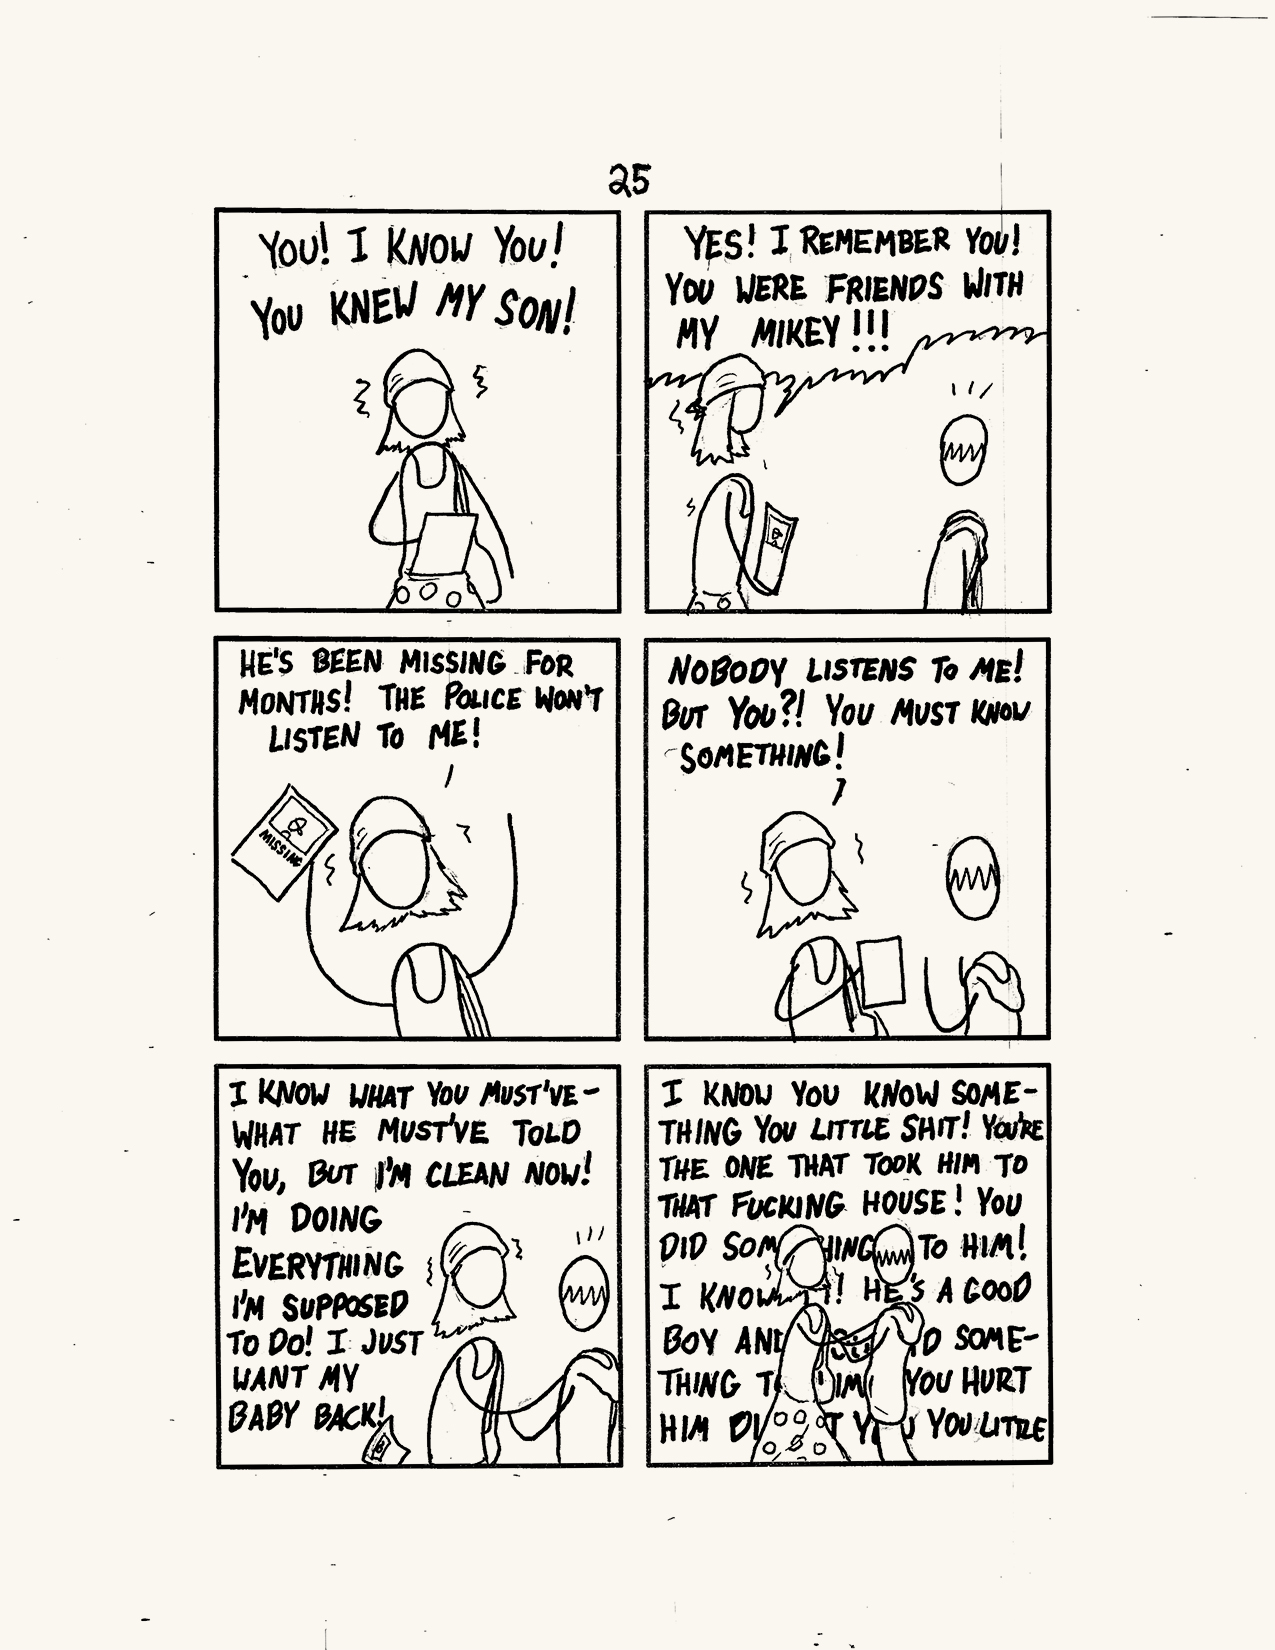 25
YOU! I KNOW YOU!
YOU KNEW MY SON!
YES! I REMEMBER YOU!
YOU WERE FRIENDS WITH
MY MIKEY!!!
HE'S BEEN MISSING FOR
MONTHS! THE POLICE WON'T
LISTEN TO ME!
MISSING
NOBODY LISTENS TO ME!
BUT YOU?! YOU MUST KNOW
SOMETHING!
I KNOW WHAT YOU MUST'VE-
WHAT HE MUST'VE TOLD
YOU, BUT I'M CLEAN NOW!
I'M DOING
EVERYTHING
I'M SUPPOSED
TO DO! I JUST
WANT MY
BABY BACK!
I KNOW YOU KNOW SOME-
THING YOU LITTLE SHIT! YOU'RE
THE ONE THAT TOOK HIM TO
THAT FUCKING HOUSE! YOU
DID SOMETHING TO HIM!
I KNOW IT! HE'S A GOOD
BOY AND SOME-
THING TO HIM YOU HURT
HIM YOU LITTLE